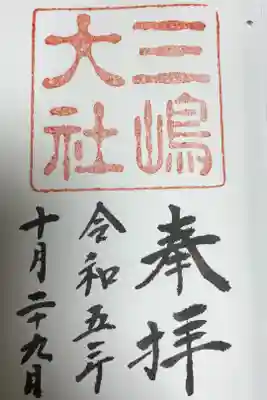 三嶋
大社
奉拝
令和五年
十月二十九日